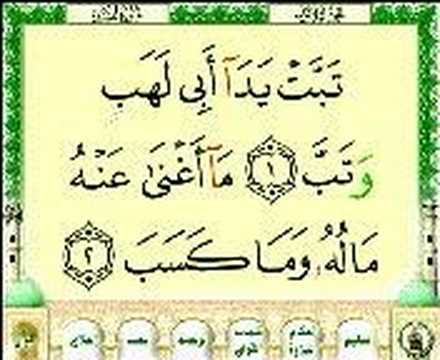 تَبَّتْ يَدَآ أَبِى لَهَبٍ
وَتَبَّ ١ مَآ أَغْنَىٰ عَنْهُ
مَالُهُۥ وَمَا كَسَبَ ٢